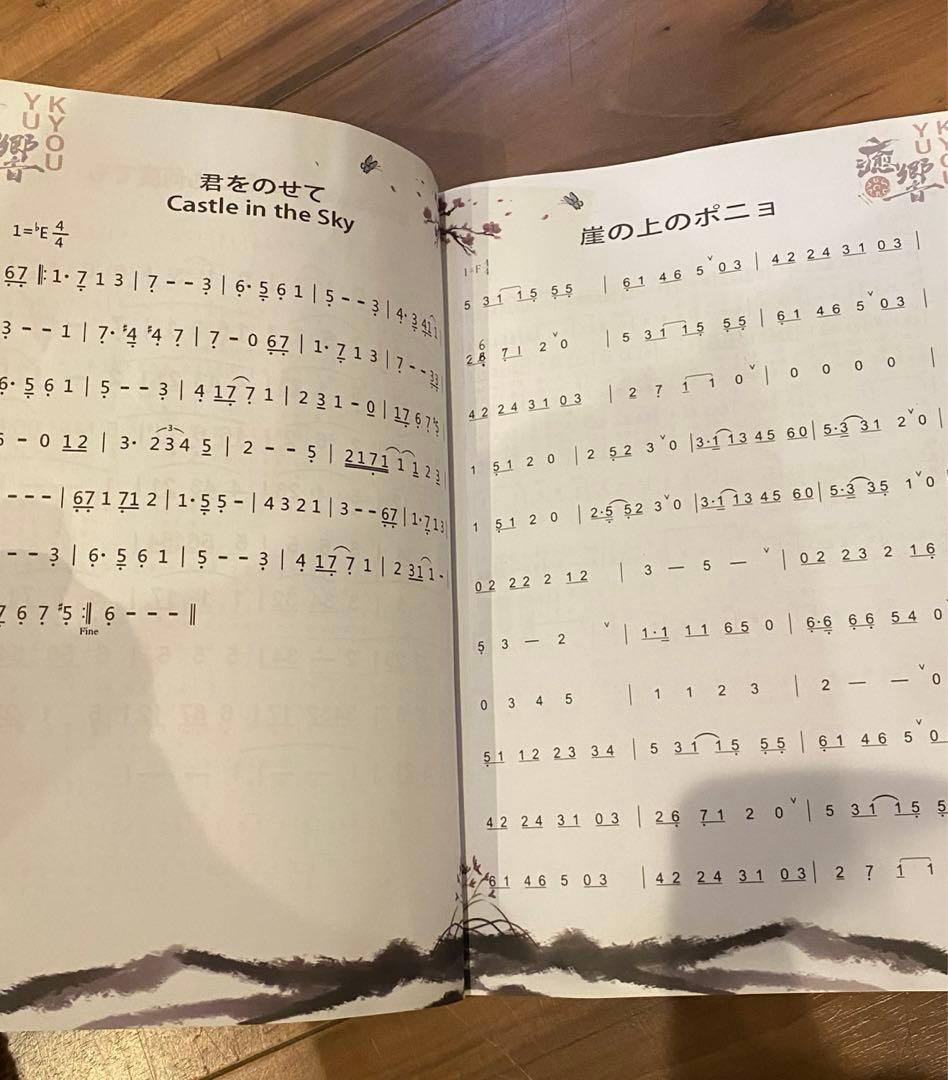 YU
KYOU
響
君をのせて
Castle in the Sky
1=♭E 4/4
67 ‖: 1· 7 1 3 | 7 - - 3 | 6· 5 6 1 | 5 - - 3 | 4· 3 4 1 1
3 - - 1 | 7· #4 #4 7 | 7 - 0 67 | 1· 7 1 3 | 7 - - 33
6· 5 6 1 | 5 - - 3 | 4 17 7 1 | 2 3 1 - 0 | 17 6 7 #5
- 0 12 | 3· 234 5 | 2 - - 5 | 2171 1 1 2 3
- - - | 67 1 71 2 | 1· 5 5 - | 4 3 2 1 | 3 - - 67 | 1· 7 1 3
- - 3 | 6· 5 6 1 | 5 - - 3 | 4 17 7 1 | 2 31 1 -
7 6 7 #5 :‖ 6 - - - ‖
Fine
癒響
YU
崖の上のポニョ
1=F 4/4
5 31 15 55 | 61 46 5 ∨ 03 | 42 24 31 03 |
26 71 2 ∨ 0 | 5 31 15 55 | 61 46 5 ∨ 03 |
42 24 31 03 | 2 7 1 1 0 ∨ | 0 0 0 0 |
1 51 2 0 | 2 52 3 ∨ 0 | 3·1 13 45 60 | 5·3 31 2 ∨ 0
1 51 2 0 | 2·5 52 3 ∨ 0 | 3·1 13 45 60 | 5·3 35 1 ∨ 0
02 22 2 12 | 3 — 5 — ∨ | 02 23 2 16
5 3 — 2 ∨ | 1·1 11 65 0 | 6·6 66 54 0
0 3 4 5 | 1 1 2 3 | 2 — — ∨ 0
51 12 23 34 | 5 31 15 55 | 61 46 5 ∨ 0
42 24 31 03 | 26 71 2 0 ∨ | 5 31 15 5
61 46 5 03 | 42 24 31 03 | 2 7 1 1